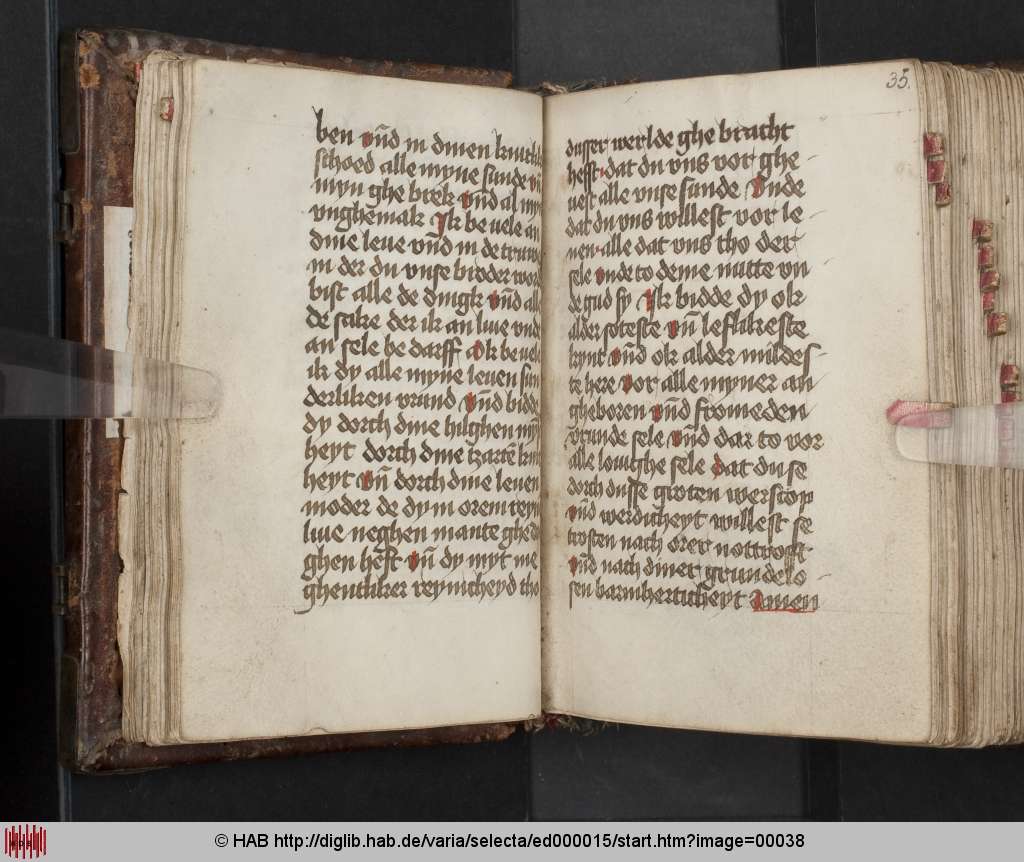 ben vn̄d in dinen
schoed alle myne sunde
myn ghe brek vn̄d al
vnghemak Jk be uele an
dine leue vn̄d in de
in der du vnse broder
bist alle de dingk vn̄d
de sake der ik an liue
an sele be darff Ok be
ik dy alle myne leuen
derliken vrund vn̄d bidde
dy dorch dine hilghen
heyt dorch dine
heyt vn̄ dorch dine leuen
moder de dy in orem
liue neghen mante
ghen heft vn̄ dy myt me
ghentliker reynicheyd tho
35.
dusser werlde ghe bracht
hefft dat du vns vor ghe
uest alle vnse sunde Vnde
dat du vns willest vor le
nen alle dat vns tho der
sele vnde to deme nutte vn
de gud sy Jk bidde dy ok
alder soteste vn̄ leflikeste
kynt vn̄d ok alder mildes
te here vor alle myner an
gheboren vn̄d fromeden
vrunde sele vn̄d dar to vor
alle louighe sele dat du se
dorch dusse groten
vn̄d werdicheyt willest se
trosten nach orer nottroft
vn̄d nach diner grundelo
sen barmherticheyt Amen
© HAB http://diglib.hab.de/varia/selecta/ed000015/start.htm?image=00038